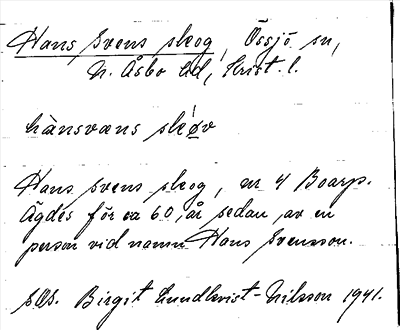 Hans Svens skog, Össjö sn,
N. Åsbo hd, Krist. l.
hànsvæns skóv
Hans Svens skog, nr 4 Boarp.
Ägdes för ca 60 år sedan av en
person vid namn Hans Svensson.
SOS. Birgit Lundkvist-Nilsson 1941.